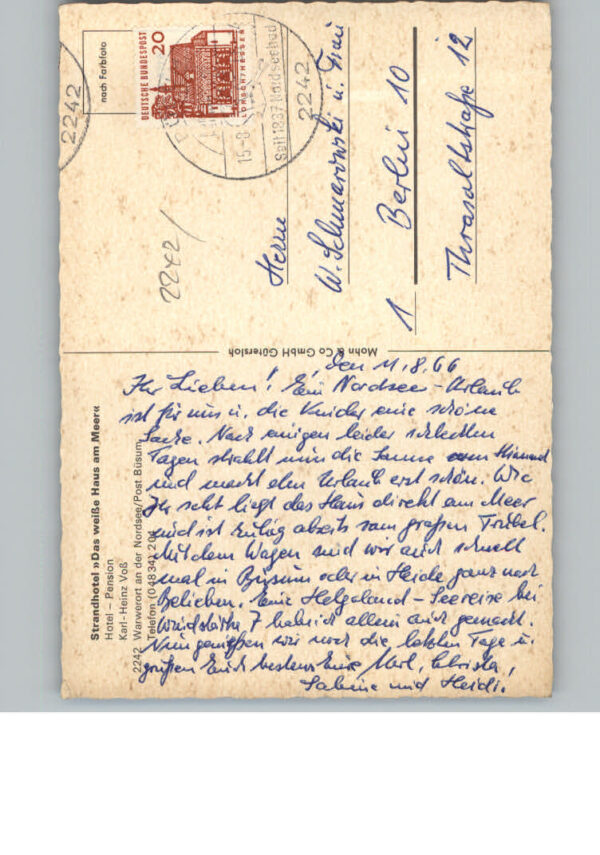 Strandhotel »Das weiße Haus am Meer«
Hotel – Pension
Karl-Heinz Voß
2242 Warwerort an der Nordsee/Post Büsum
Telefon (04834) 204
den 11.8.66
Ihr Lieben! Ein Nordsee-Urlaub
ist für uns u. die Kinder eine schöne
Sache. Nach einigen leider schlechten
Tagen strahlt nun die Sonne vom Himmel
und macht den Urlaub erst schön. Wie
Ihr seht liegt das Haus direkt am Meer
und ist ruhig abseits vom großen Trubel.
Mit dem Wagen sind wir auch schnell
mal in Büsum oder in Heide ganz nach
Belieben. Eine Helgoland-Seereise bei
Windstärke 7 hab ich allein auch gemacht.
Nun genießen wir noch die letzten Tage u.
grüßen Euch bestens Eure Christa,
Sabine und Heidi.
Mohn & Co GmbH Gütersloh
nach Farbfoto
DEUTSCHE BUNDESPOST
20
LORSCH/HESSEN
2242
15-8
Seit 1837 Nordseebad
2242
2242/
Herrn
W. Schmarowski u. Frau
1 Berlin 10
Thrasoltstraße 12